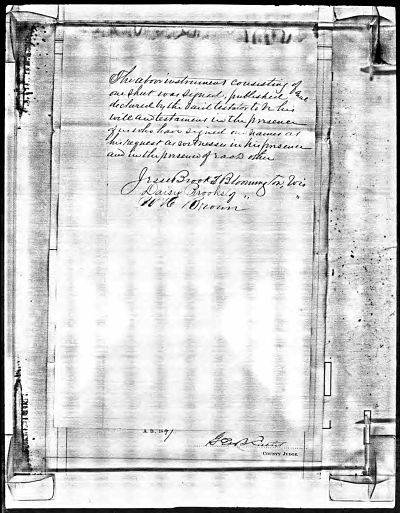 The above instrument consisting of
one sheet was signed, published and
declared by the said testator to be his
will and testament in the presence
of us who have signed our names at
his request as witnesses in his presence
and in the presence of each other
Jesse Brooks Bloomington, Wis
Daisy Brooks " "
W H Brown
A. D., 189
Geo B
County Judge.